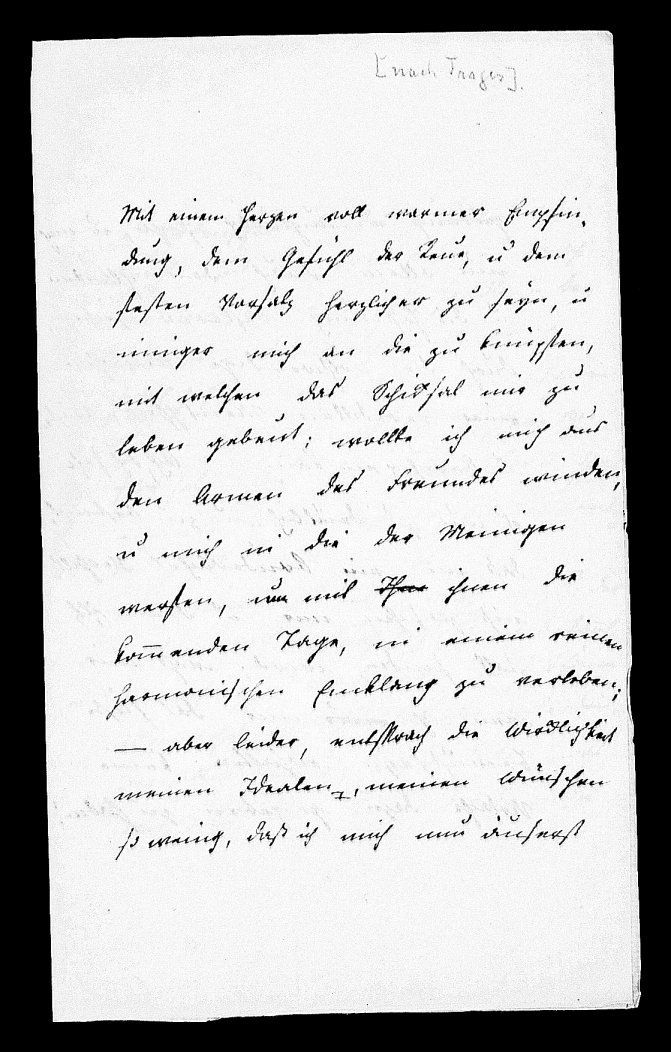 [nach Trages].
Mit einem Herzen voll warmer Empfin-
dung, dem Gefühl der Reue, u dem
festen Vorsatz herzlicher zu seyn, u
inniger mich an die zu knüpfen,
mit welchen das Schiksal mir zu
leben gebeut; wollte ich mich aus
den Armen des Freundes winden,
u mich in die der Meinigen
werfen, um mit Ihne ihnen die
kom̅enden Tage, in einem reinen
harmonischen Einklang zu verleben;
— aber leider, entsprach die Wirklichkeit
meinen Idealen, meinen Wünschen
so wenig, daß ich mich nun äuserst